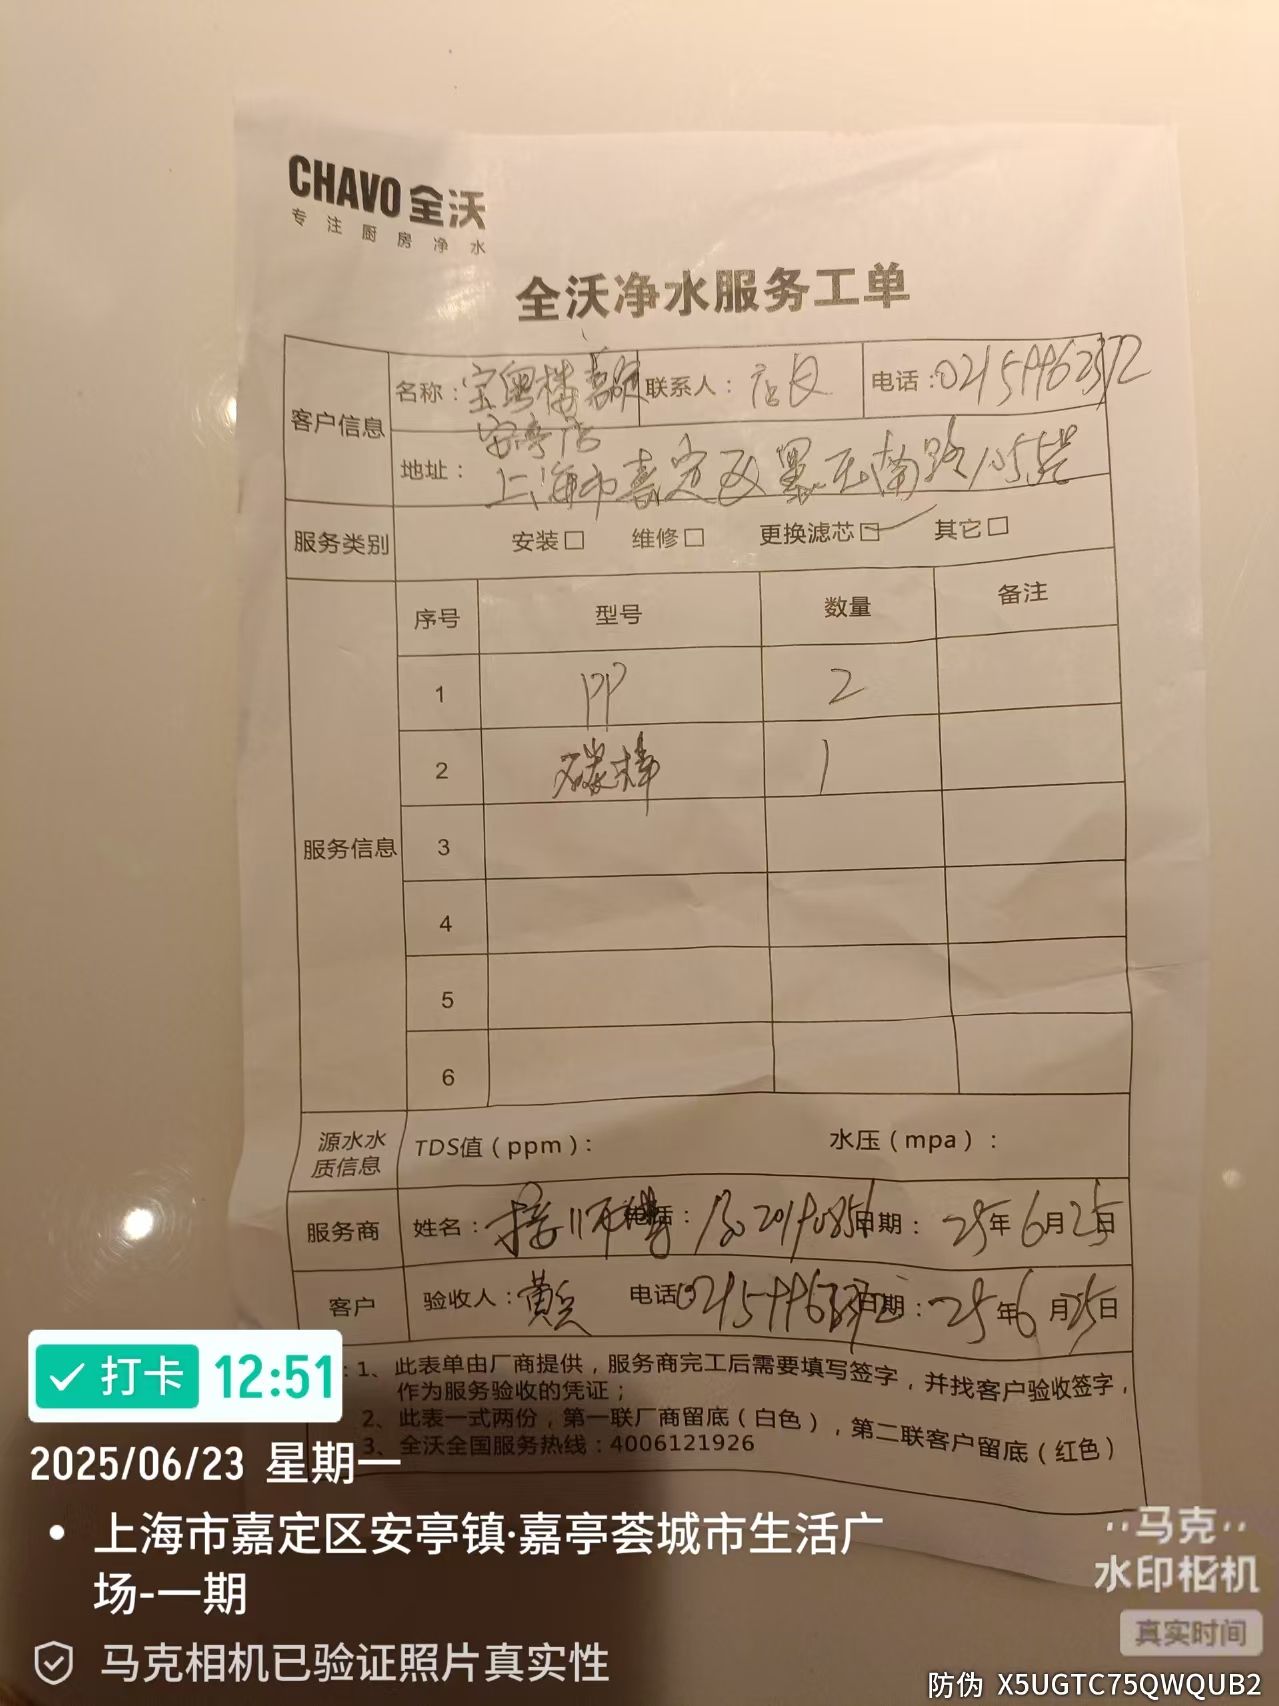 CHAVO 全沃
专注厨房净水
全沃净水服务工单
客户信息
名称：宝粤楼嘉定安亭店 联系人：店长 电话：02159962372
地址：上海市嘉定区墨玉南路1055号
服务类别 安装□ 维修□ 更换滤芯☑ 其它□
服务信息
序号 型号 数量 备注
1 PP 2
2 碳棒 1
3
4
5
6
源水水质信息 TDS值（ppm）： 水压（mpa）：
服务商 姓名： 电话： 日期：25年6月25日
客户 验收人：黄 电话 日期：25年6月25日
：1、此表单由厂商提供，服务商完工后需要填写签字，并找客户验收签字，
作为服务验收的凭证；
2、此表一式两份，第一联厂商留底（白色），第二联客户留底（红色）
3、全沃全国服务热线：4006121926
打卡 12:51
2025/06/23 星期一
上海市嘉定区安亭镇·嘉亭荟城市生活广
场-一期
马克相机已验证照片真实性
马克
水印相机
真实时间
防伪 X5UGTC75QWQUB2